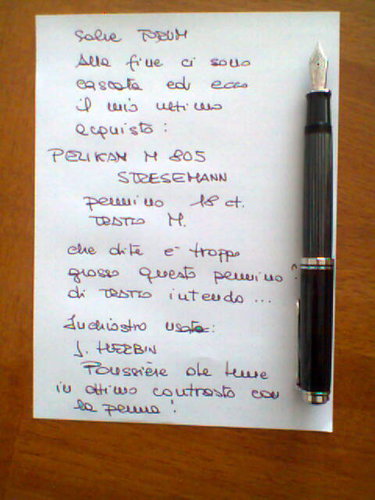 Salve FORUM
Alla fine ci sono
cascata ed ecco
il mio ultimo
acquisto:
PELIKAN M 805
STRESEMANN
pennino 18 ct.
TRATTO M.
che dite e' troppo
grosso questo pennino?
di TRATTO intendo...
Inchiostro usato:
J. HERBIN
Poussière de lune
in ottimo contrasto con
la penna!